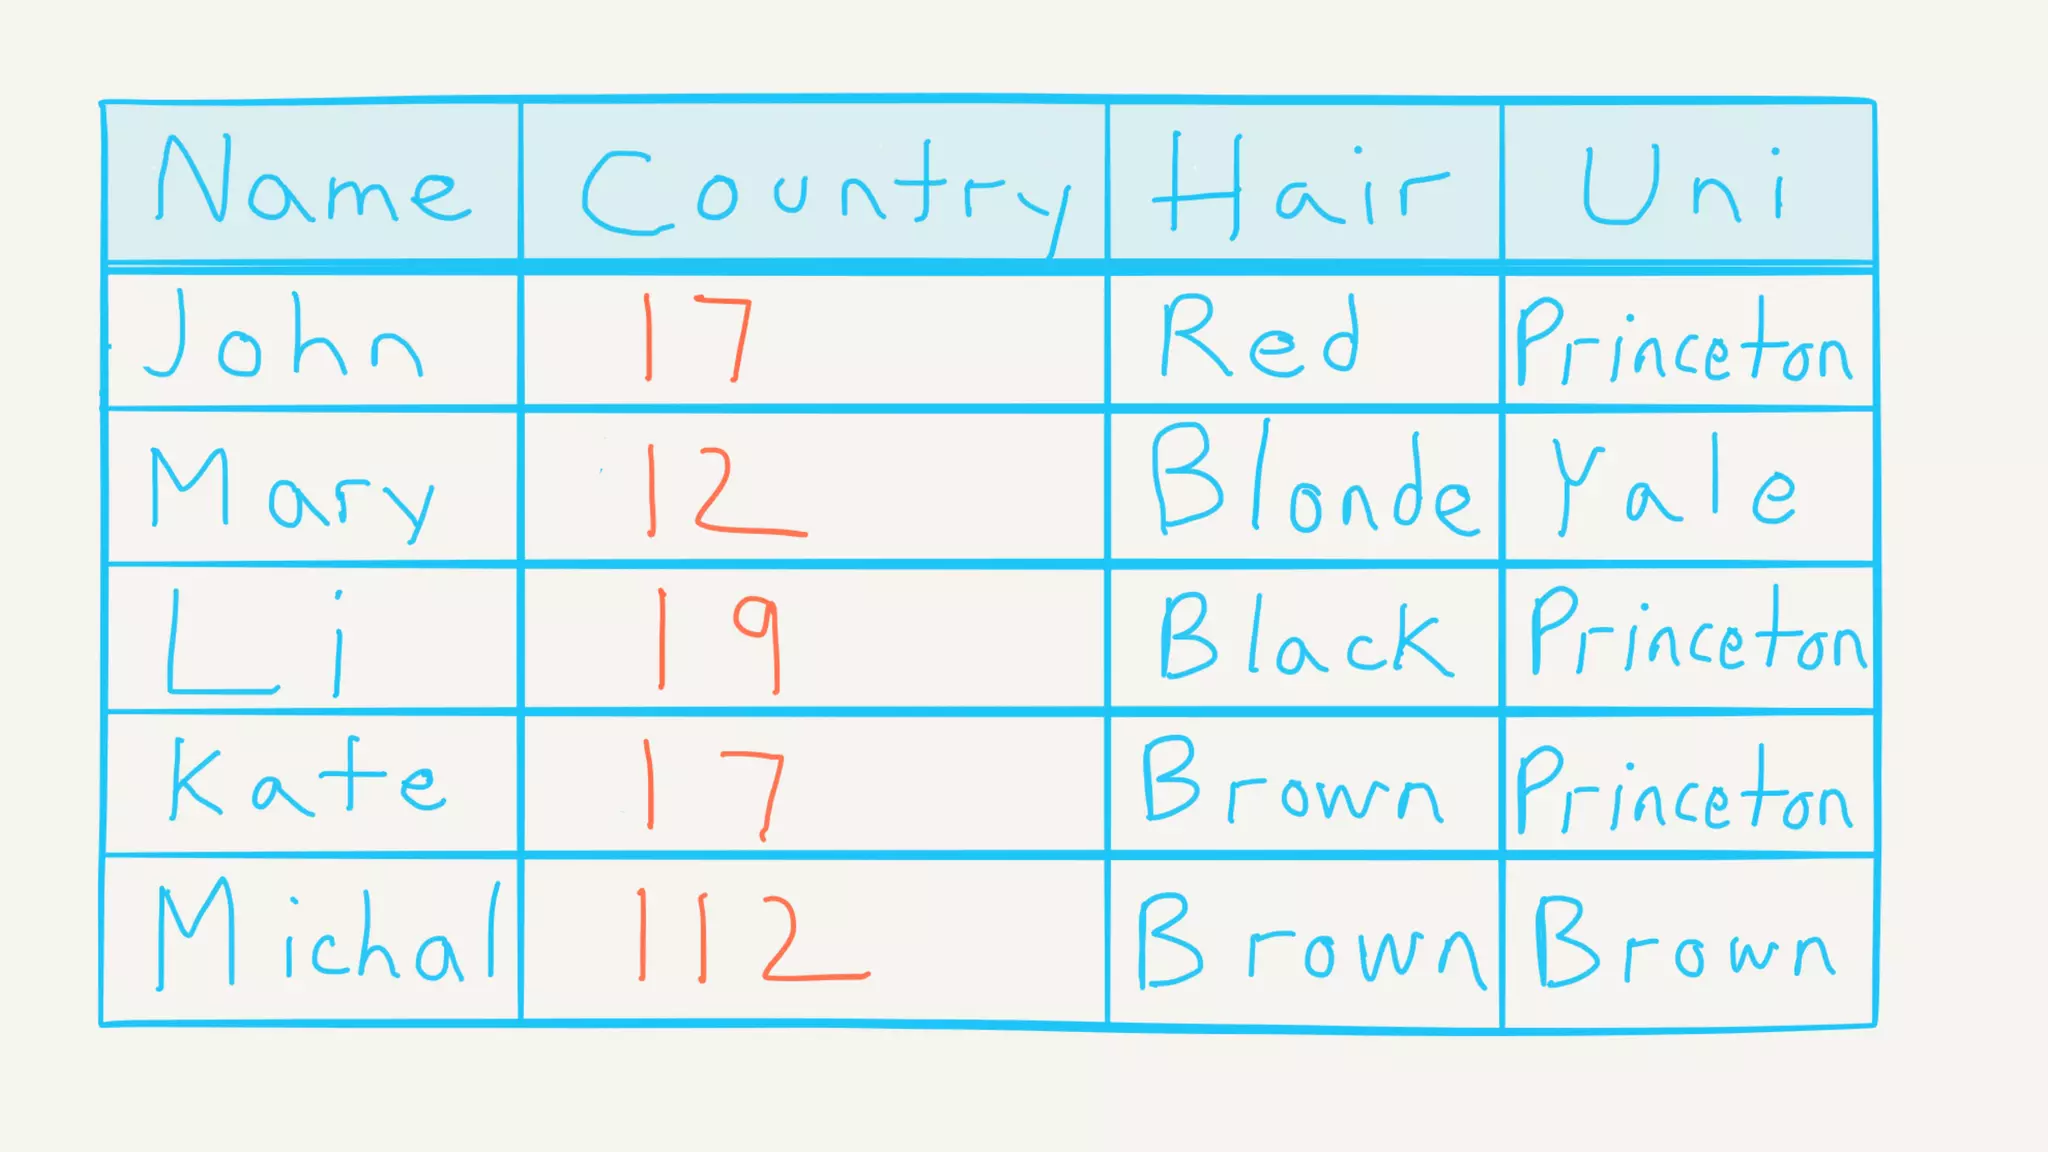 Name Country Hair Uni
John 17 Red Princeton
Mary 12 Blonde Yale
Li 19 Black Princeton
Kate 17 Brown Princeton
Michal 112 Brown Brown